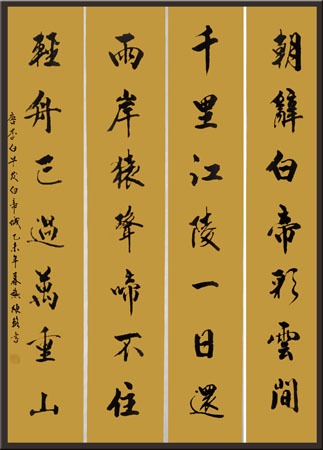 朝辭白帝彩雲間
千里江陵一日還
兩岸猿聲啼不住
輕舟已過萬重山
唐李白早發白帝城乙未年春